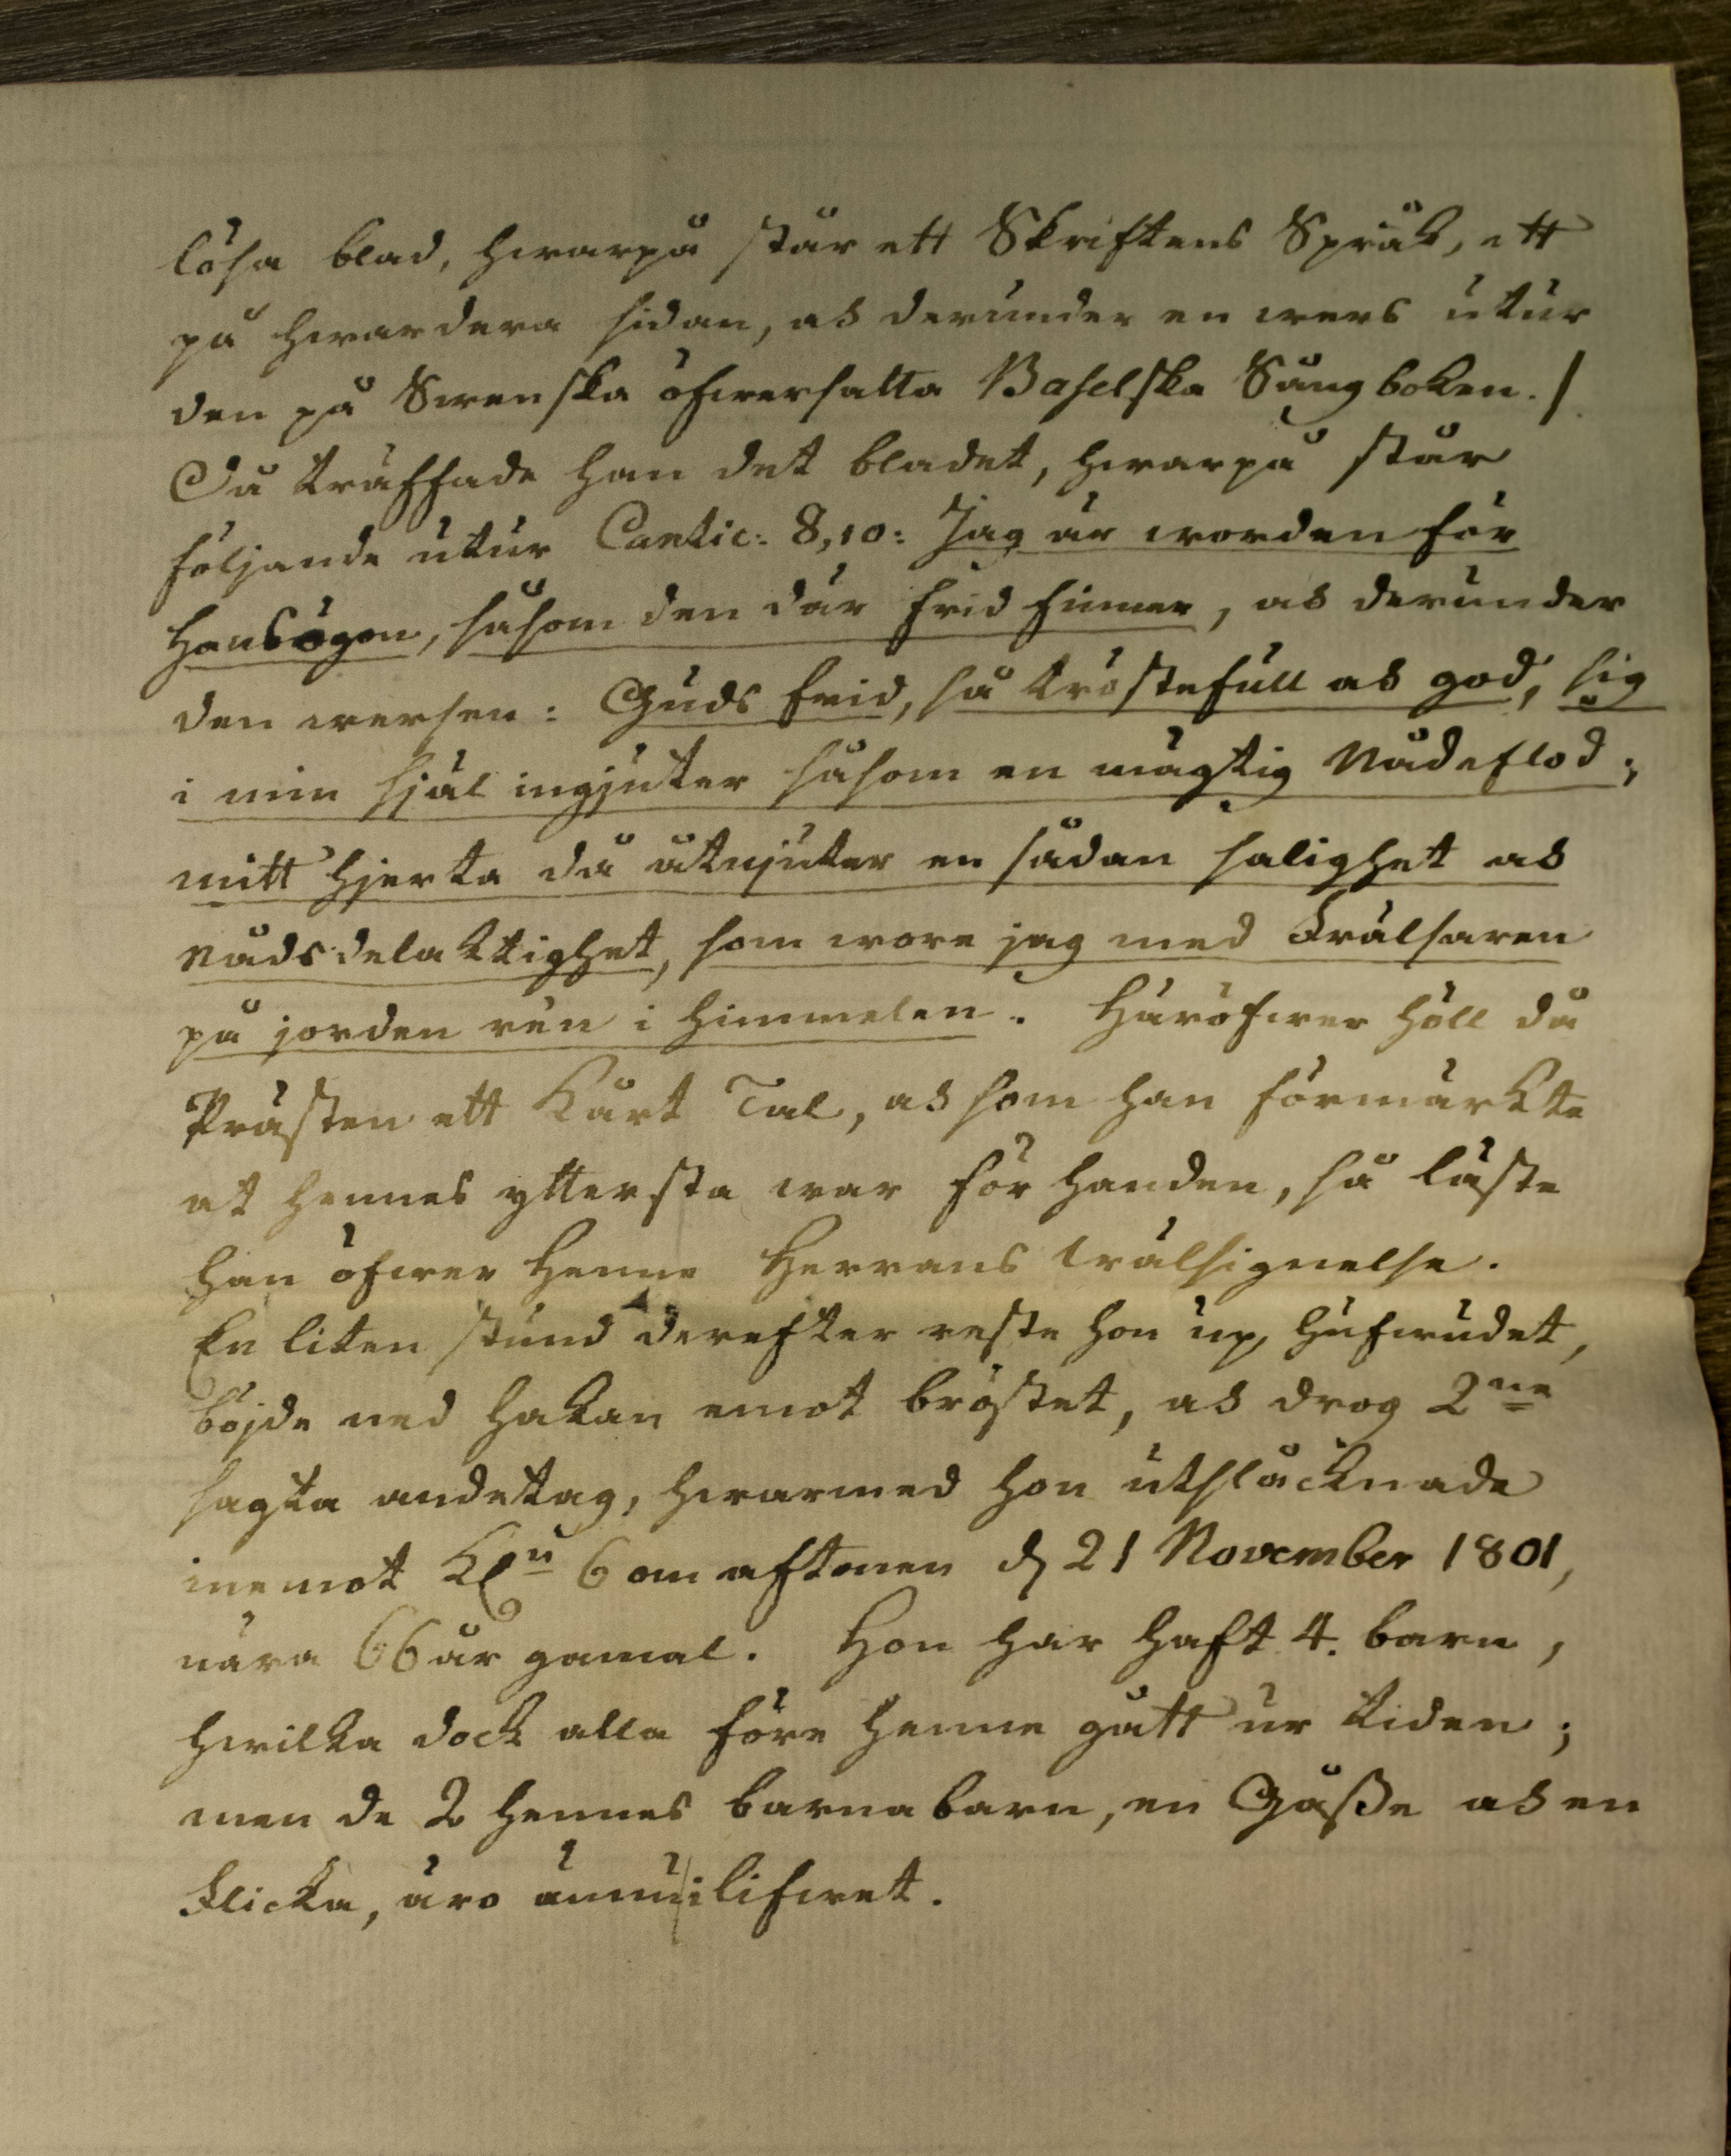 lösa blad, hwarpå står ett Skriftens Språk, ett
på hwardera sidan, och derunder en wers utur
den på Swenska öfwersatta Baselska Sångboken. /
Då träffade han det bladet, hwarpå står
följande utur Cantic: 8,10: Jag är worden för
hans ögon, såsom den där frid finner, och derunder
den wersen: Guds frid, så tröstefull och god, sig
i min själ ingjuter såsom en mägtig Nådeflod;
mitt hjerta då åtnjuter en sådan salighet och
nådsdelaktighet, som wore jag med Frälsaren
på jorden ren i himmelen. Häröfwer höll då
Prästen ett kårt Tal, och som han förmärkte
at hennes yttersta war för handen, så läste
han öfwer henne Herrans wälsignelse.
En liten stund derefter reste hon up hufwudet,
böjde ned hakan emot bröstet, och drog 2ne
sagta andetag, hwarmed hon utslåcknade
inemot Kln 6 om aftonen d. 21 November 1801,
nära 66 år gamal. Hon har haft 4. barn,
hwilka dock alla före henne gått ur tiden;
men de 2 hennes barnabarn, en Gåsse och en
Flicka, äro ännu i lifwet.